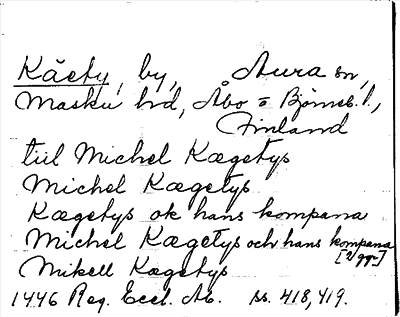 Käety, by, Aura sn,
Masku hd, Åbo o Björneb. l.,
Finland
till Michel Kægetys
Michel Kægetys
Kægetys ok hans kompana
Michel Kægetys och hans kompana
[2 ggr]
Mikell Kægetys
1446 Reg. Eccl. Ab. ss. 418, 419.